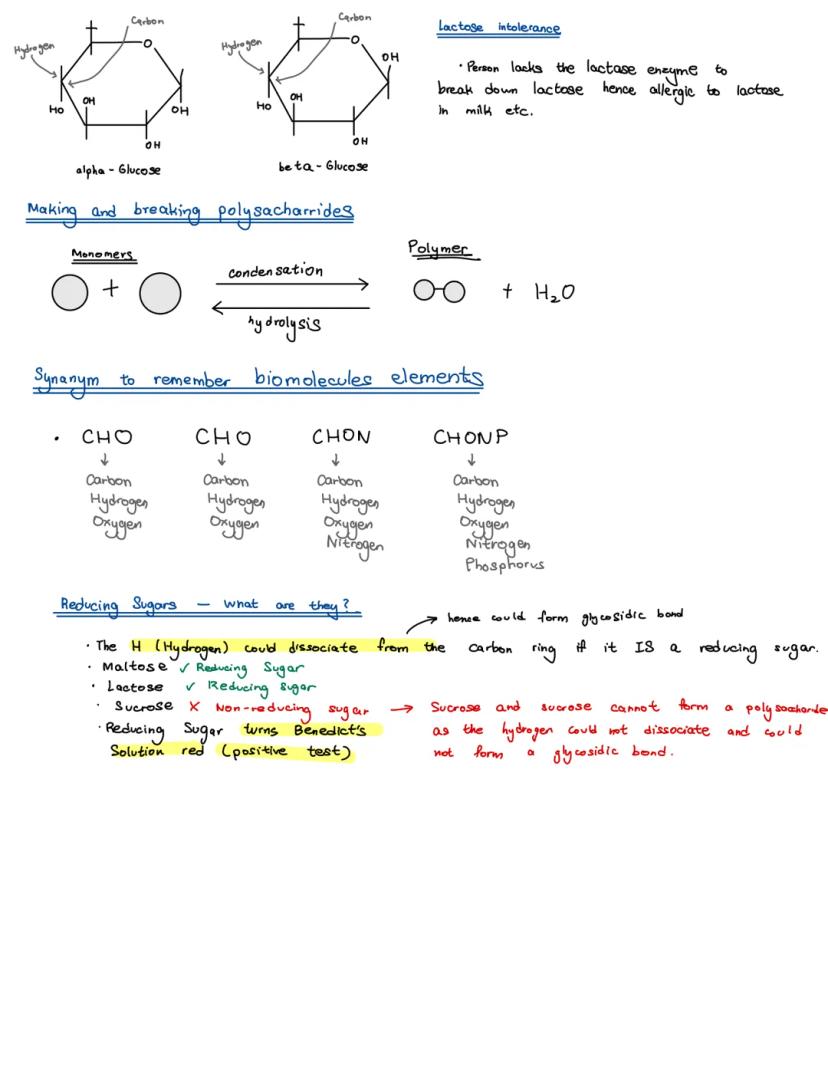 Carbon
Hydrogen
O
HO
OH
OH
OH
alpha - Glucose
Carbon
Hydrogen
O
OH
HO
OH
OH
beta - Glucose
Lactose intolerance
· Person lacks the lactase enzyme to
break down lactose hence allergic to lactose
in milk etc.
Making and breaking polysacharrides
Monomers
+
condensation
hydrolysis
Polymer
+ H₂O
Synanym to remember biomolecules elements
· CHO CHO CHON CHONP
↓ ↓ ↓ ↓
Carbon Carbon Carbon Carbon
Hydrogen Hydrogen Hydrogen Hydrogen
Oxygen Oxygen Oxygen Oxygen
Nitrogen Nitrogen
Phosphorus
Reducing Sugars — what are they?
→ hence could form glycosidic bond
· The H (Hydrogen) could dissociate from the carbon ring if it IS a reducing sugar.
· Maltose ✓ Reducing Sugar
· Lactose ✓ Reducing sugar
· Sucrose X Non-reducing sugar → Sucrose and sucrose cannot form a polysaccharide
as the hydrogen could not dissociate and could
not form a glycosidic bond.
· Reducing Sugar turns Benedict's
Solution red (positive test)